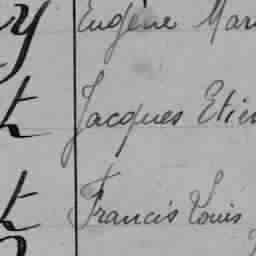 y Eugène Mar
t Jacques Etien
t Francis Louis